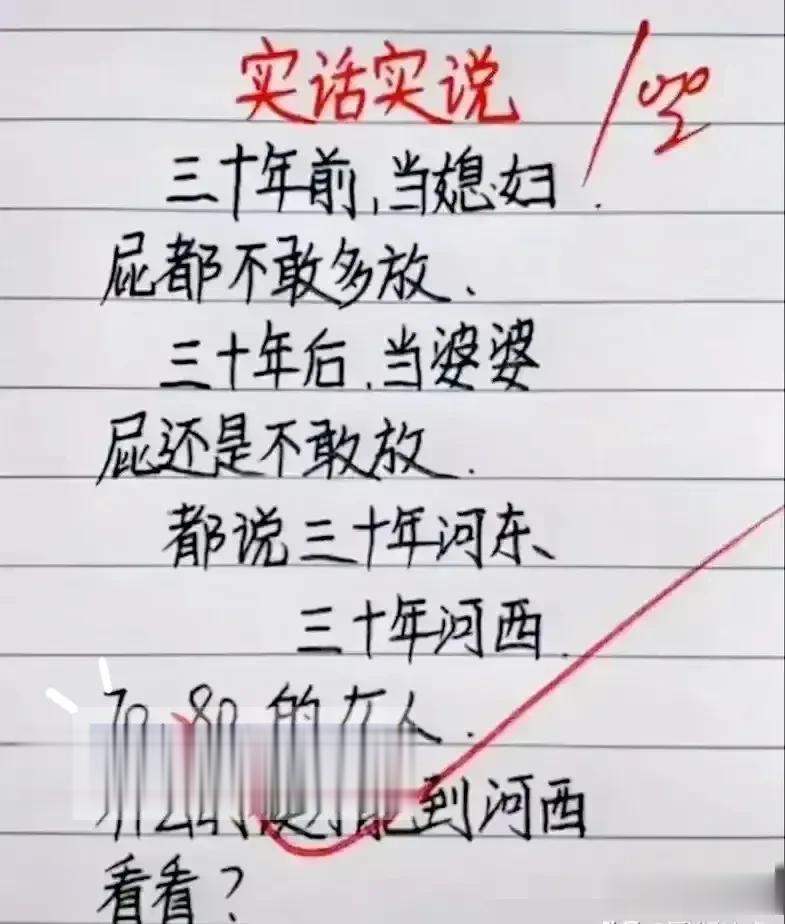 实话实说
100
三十年前,当媳妇.
屁都不敢多放.
三十年后,当婆婆
屁还是不敢放.
都说三十年河东、
三十年河西.
70、80的女人.
到河西
看看?